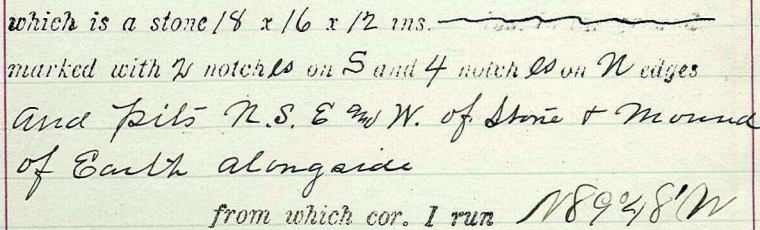 which is a stone 18 x 16 x 12 ins.
marked with 2 notches on S and 4 notches on N edges
and pits N. S. E and W. of Stone & Mound
of Earth alongside
from which cor. I run N89°48'W